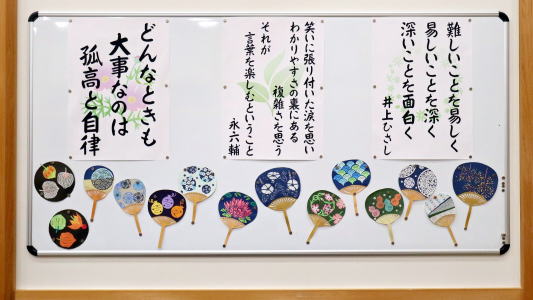 難しいことを易しく
易しいことを深く
深いことを面白く
井上ひさし
笑いに張り付いた涙を思い
わかりやすさの裏にある
複雑さを思う
それが
言葉を楽しむということ
永六輔
どんなときも
大事なのは
孤高と自律